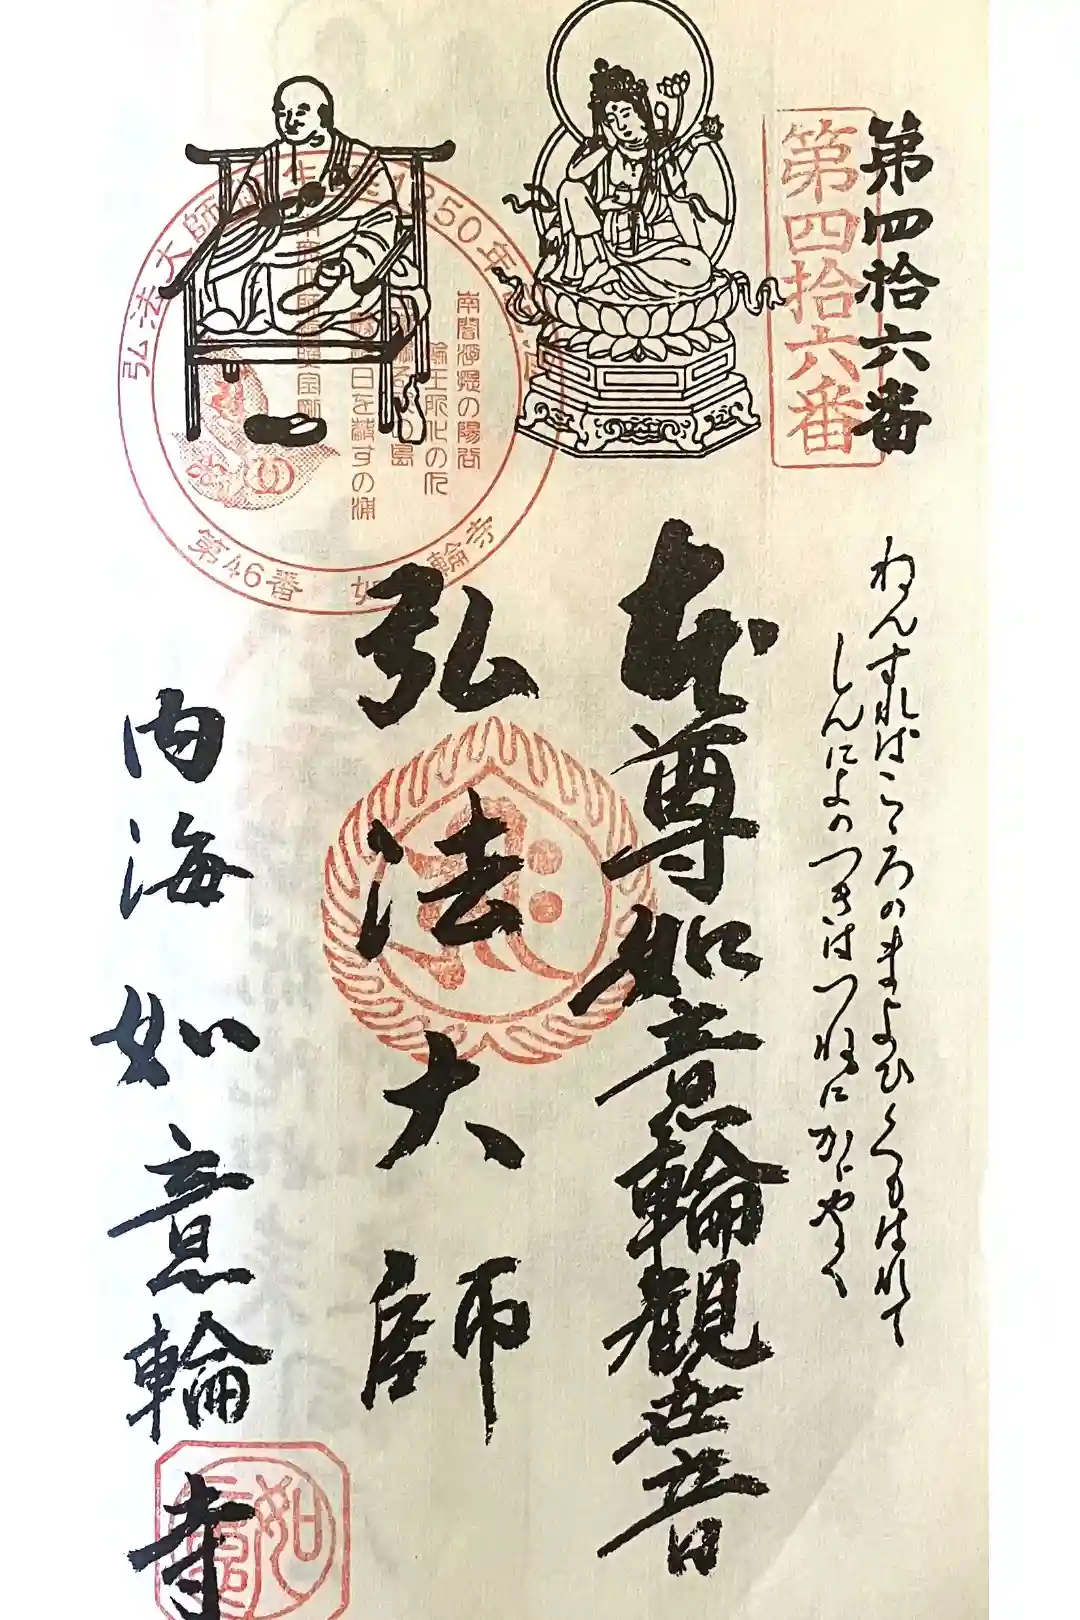 第四拾六番
第四拾六番
ねんずればこころのまよひくもはれて
しんによのつきはつねにかゞやく
本尊如意輪観世音
弘法大師
内海如意輪寺
弘法大師 1250年
南閻浮提の陽谷
輪王所化の下
日を蔽すの浦
第46番 如意輪寺